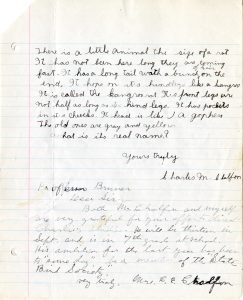 There is a little animal the size of a rat
It has not been here long they are coming
fast. It has a long tail with a bunch on the
end. It hops on its hindlegs like a kangroo
It is called the kangroorat. Its front legs are
not half as long as its hind legs. It has pockets
in its cheeks. It head is like a gophes
The old ones are grey and yellow
What is its real name?
Yours truly
Charles M.
Professor Bruner
Dear Sir
Both Mr. and myself
are very grateful for your efforts
Charlie's He will be thirteen in
Sept. and is in 7th grade at school.
his ambition for the last year has been
to "some day" be a member of the State
Bird Society.
Very truly, Mrs. C. E.